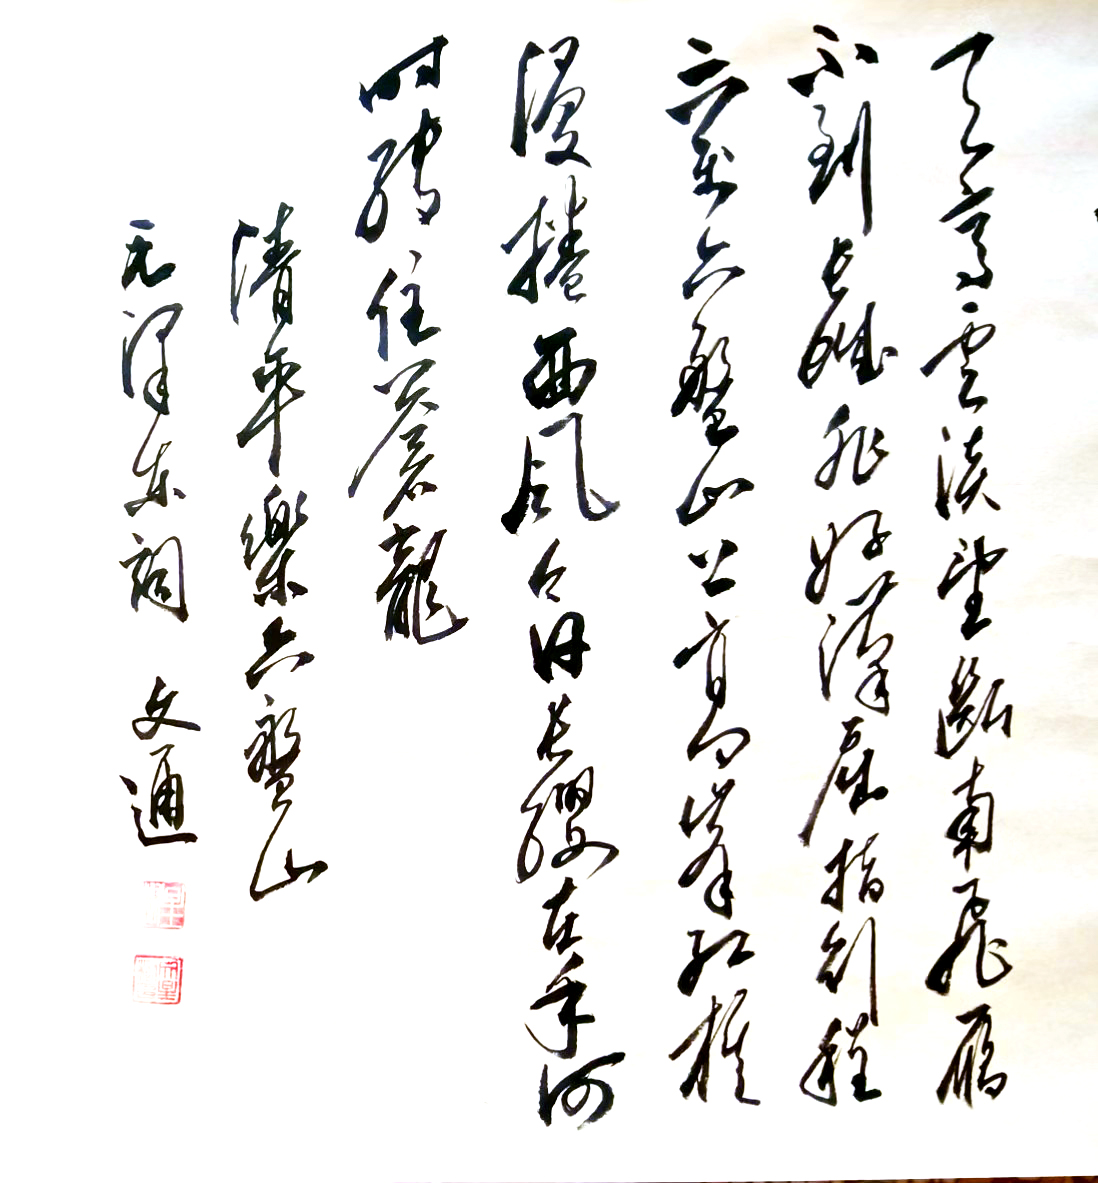 天高雲淡望斷南飛雁
不到長城非好漢屈指行程
二萬六盤山上高峯紅旗
漫捲西風今日長纓在手何
時縛住蒼龍
清平樂六盤山
毛澤东詞 文通